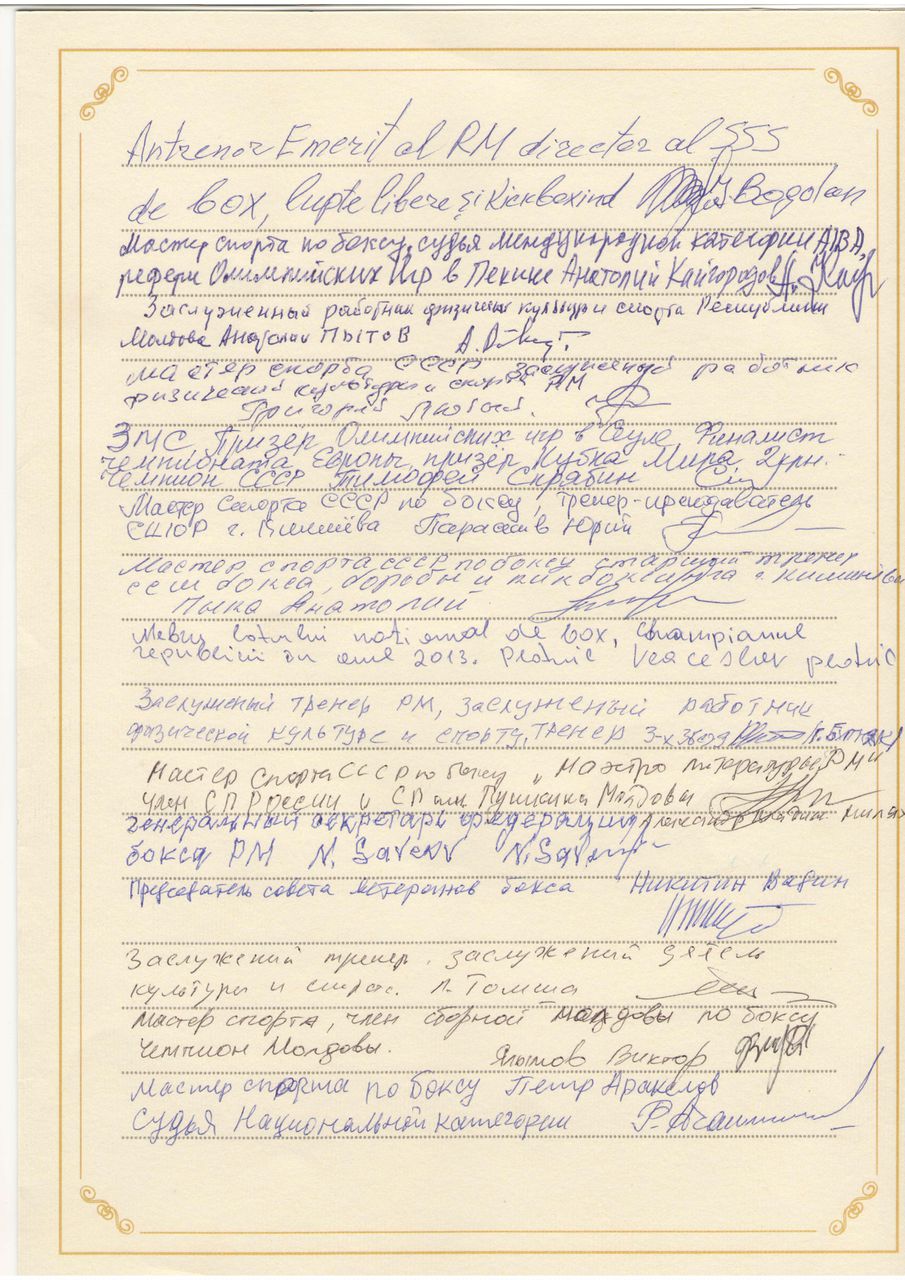 Antrenor Emerit al RM director al SSS
de box, lupte libere și Kickboxind Bogdan
Мастер спорта по боксу, судья международной категории AIBA,
рефери Олимпийских Игр в Пекине Анатолий Кайгородов
Заслуженный работник физической культуры и спорта Республики
Молдова Анатолий Пытов
Мастер спорта СССР заслуженный работник
физической культуры и спорта РМ
Григорий
ЗМС Призёр Олимпийских игр в Сеуле, Финалист
Чемпионата Европы, призёр Кубка Мира, 2крн.-
Чемпион СССР Тимофей Скрябин
Мастер Спорта СССР по боксу, тренер-преподаватель
г. Кишинёва Параскив Юрий
Мастер спорта СССР по боксу старший тренер
ссш бокса, борьбы и кикбоксинга г. Кишинёва
Пыка Анатолий
Mebru lotului național de box, Championul
republicii în anul 2013. Plotnic Veaceslav plotnic
Заслуженый тренер РМ, заслуженый работник
физической культуре и спорту, тренер 3-х звезд
Мастер спорта СССР по боксу, Маэстро литературы РМ и
член СП России и СП им. Пушкина Молдовы
Генеральный секретарь федерации
бокса РМ N. Savenv
Председатель совета ветеранов бокса Никитин Вадим
Заслужений тренер. заслужений деятель
культуры и спорта. Л. Томша
Мастер спорта, член сборной Молдовы по боксу
Чемпион Молдовы. Ялытов Виктор
Мастер спорта по боксу Петр Аракелов
Судья Национальной категории